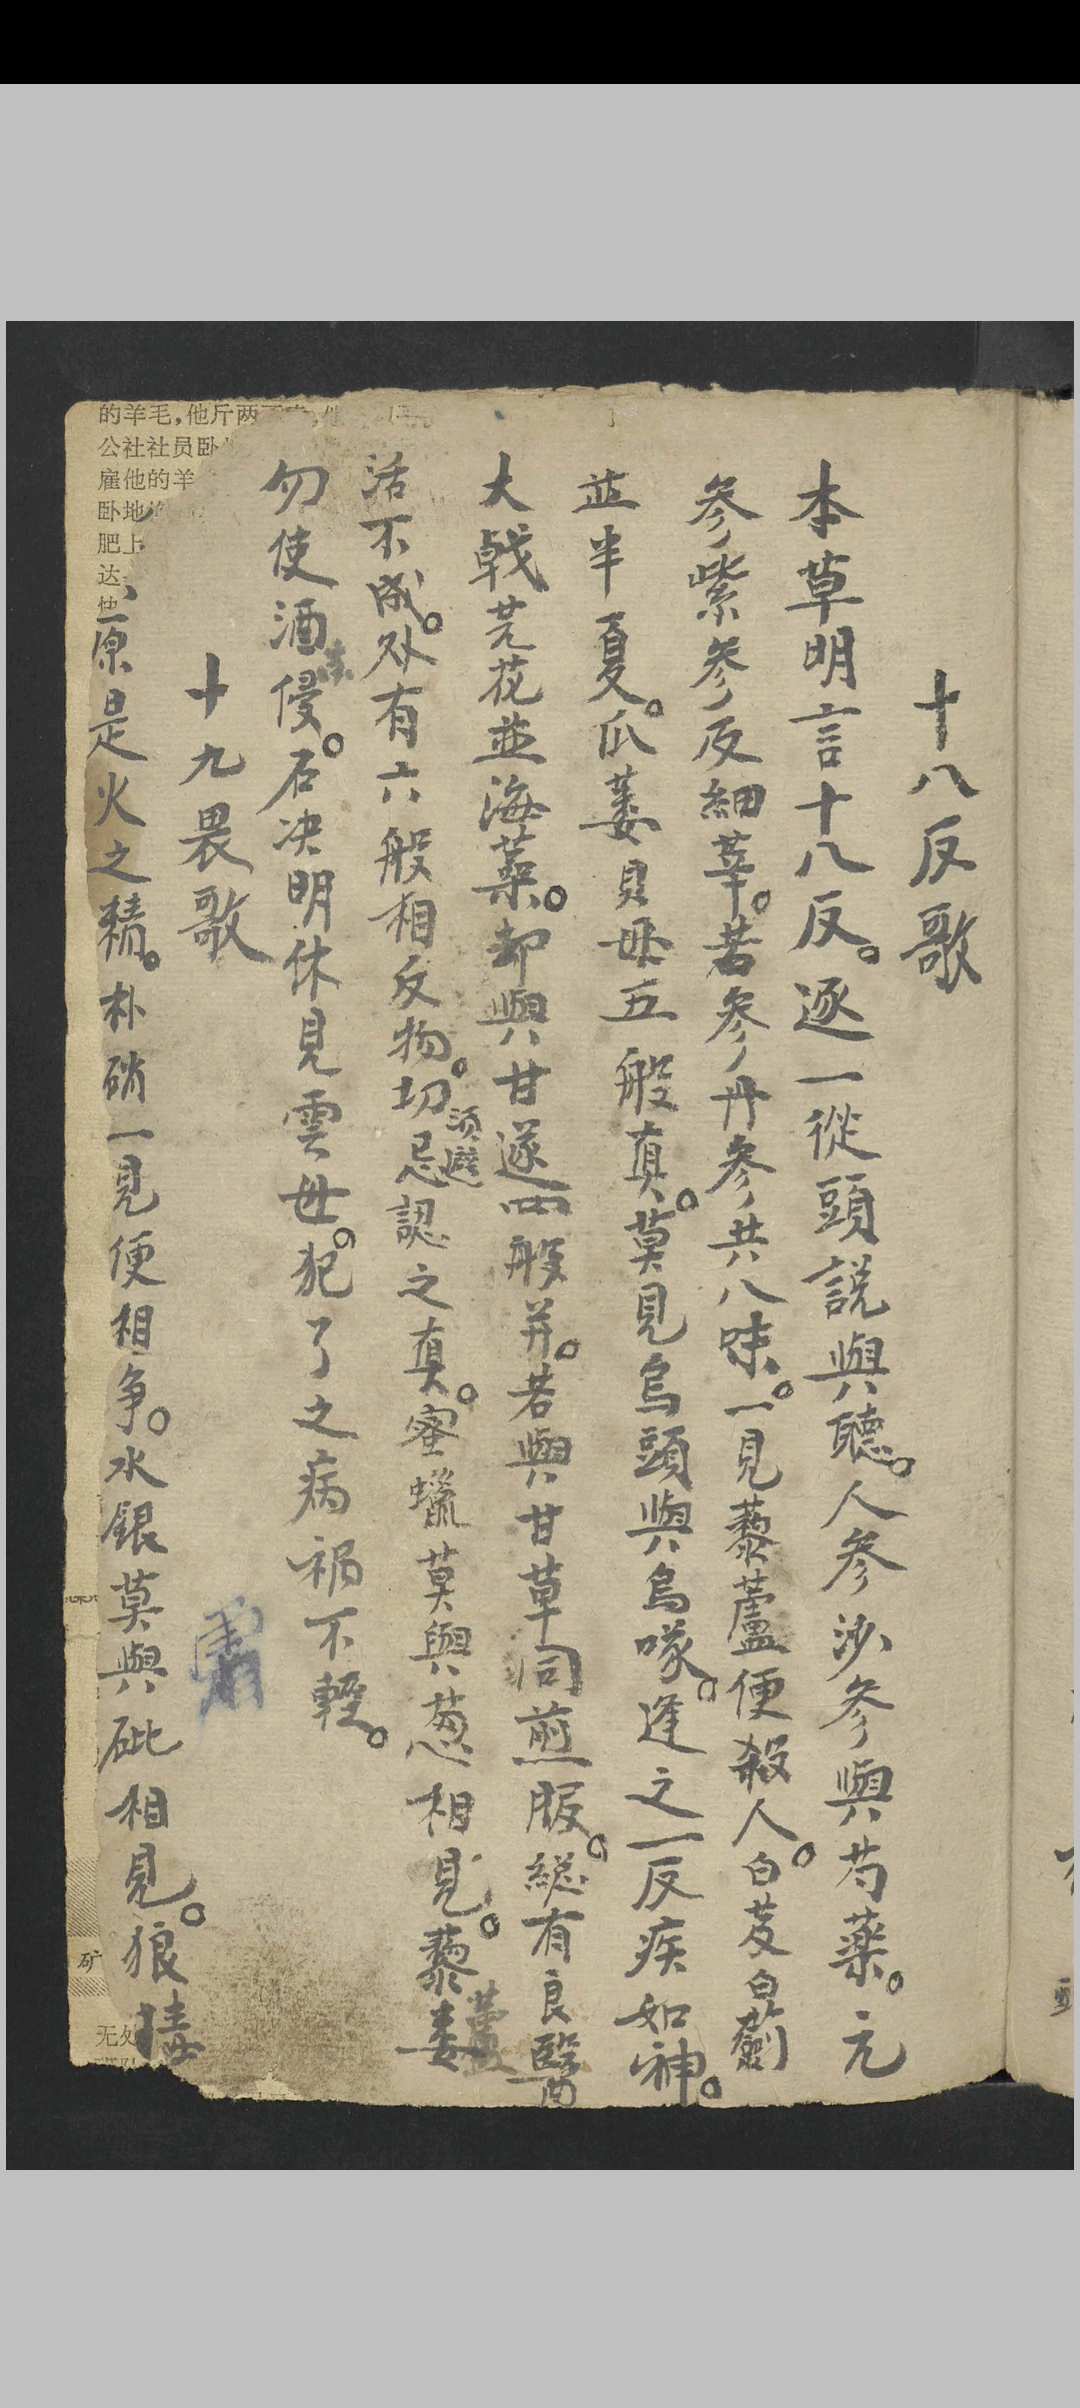 十八反歌
本草明言十八反。逐一從頭説與聽。人參沙參與芍藥。元
參紫參反細莘。苦參丹參共八味。一見藜蘆便殺人。白芨白蘞
並半夏。瓜蔞貝母五般真。莫見烏頭與烏喙。逢之一反疾如神。
大戟芫花並海藻。却與甘遂四般并。若與甘草同煎服。縂有良醫
活不成。外有六般相反物。切忌認之真。蜜蠟莫與葱相見。藜蘆
須避
勿使酒侵。石决明休見雲母。犯了之病祸不輕。
來
十九畏歌
原是火之精。朴硝一見便相争。水銀莫與砒相見。狼毒
的羊毛，他斤两
公社社员卧
雇他的羊
卧地
肥上
达
矿
无